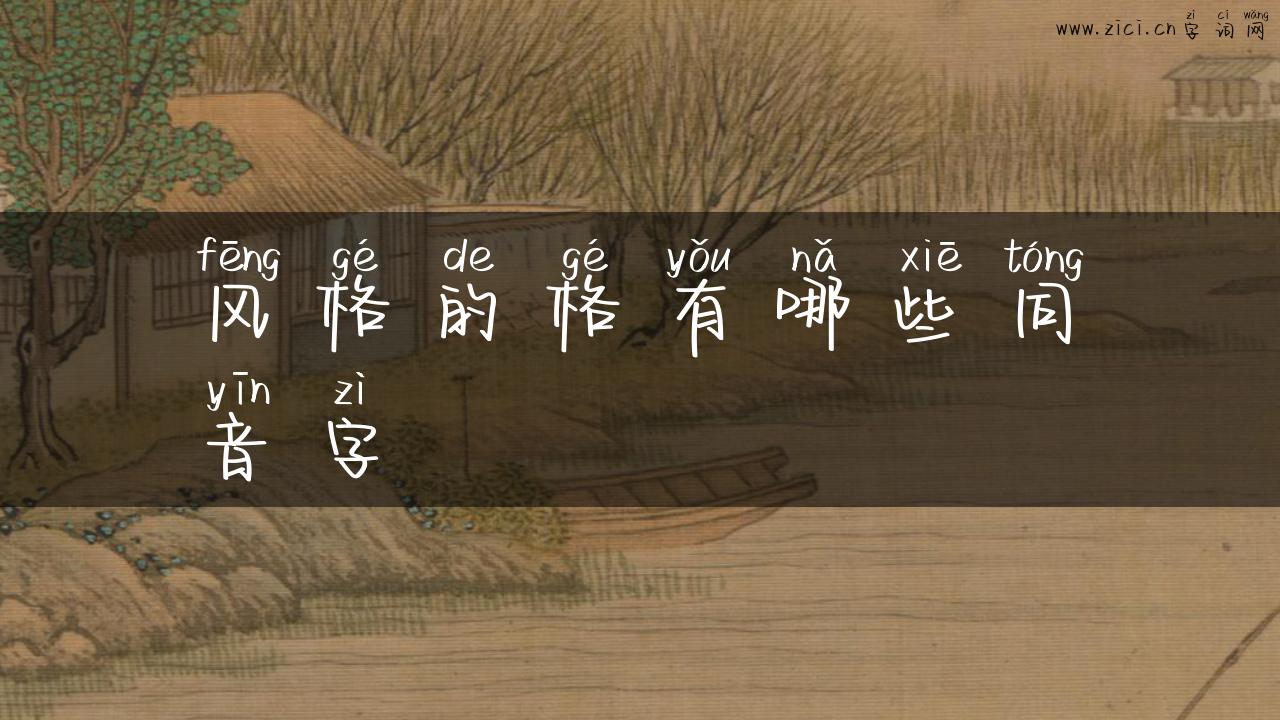 zì cí wǎng
www.zici.cn 字词网
fēng gé de gé yǒu nǎ xiē tóng
风格的格有哪些同
yīn zì
音字